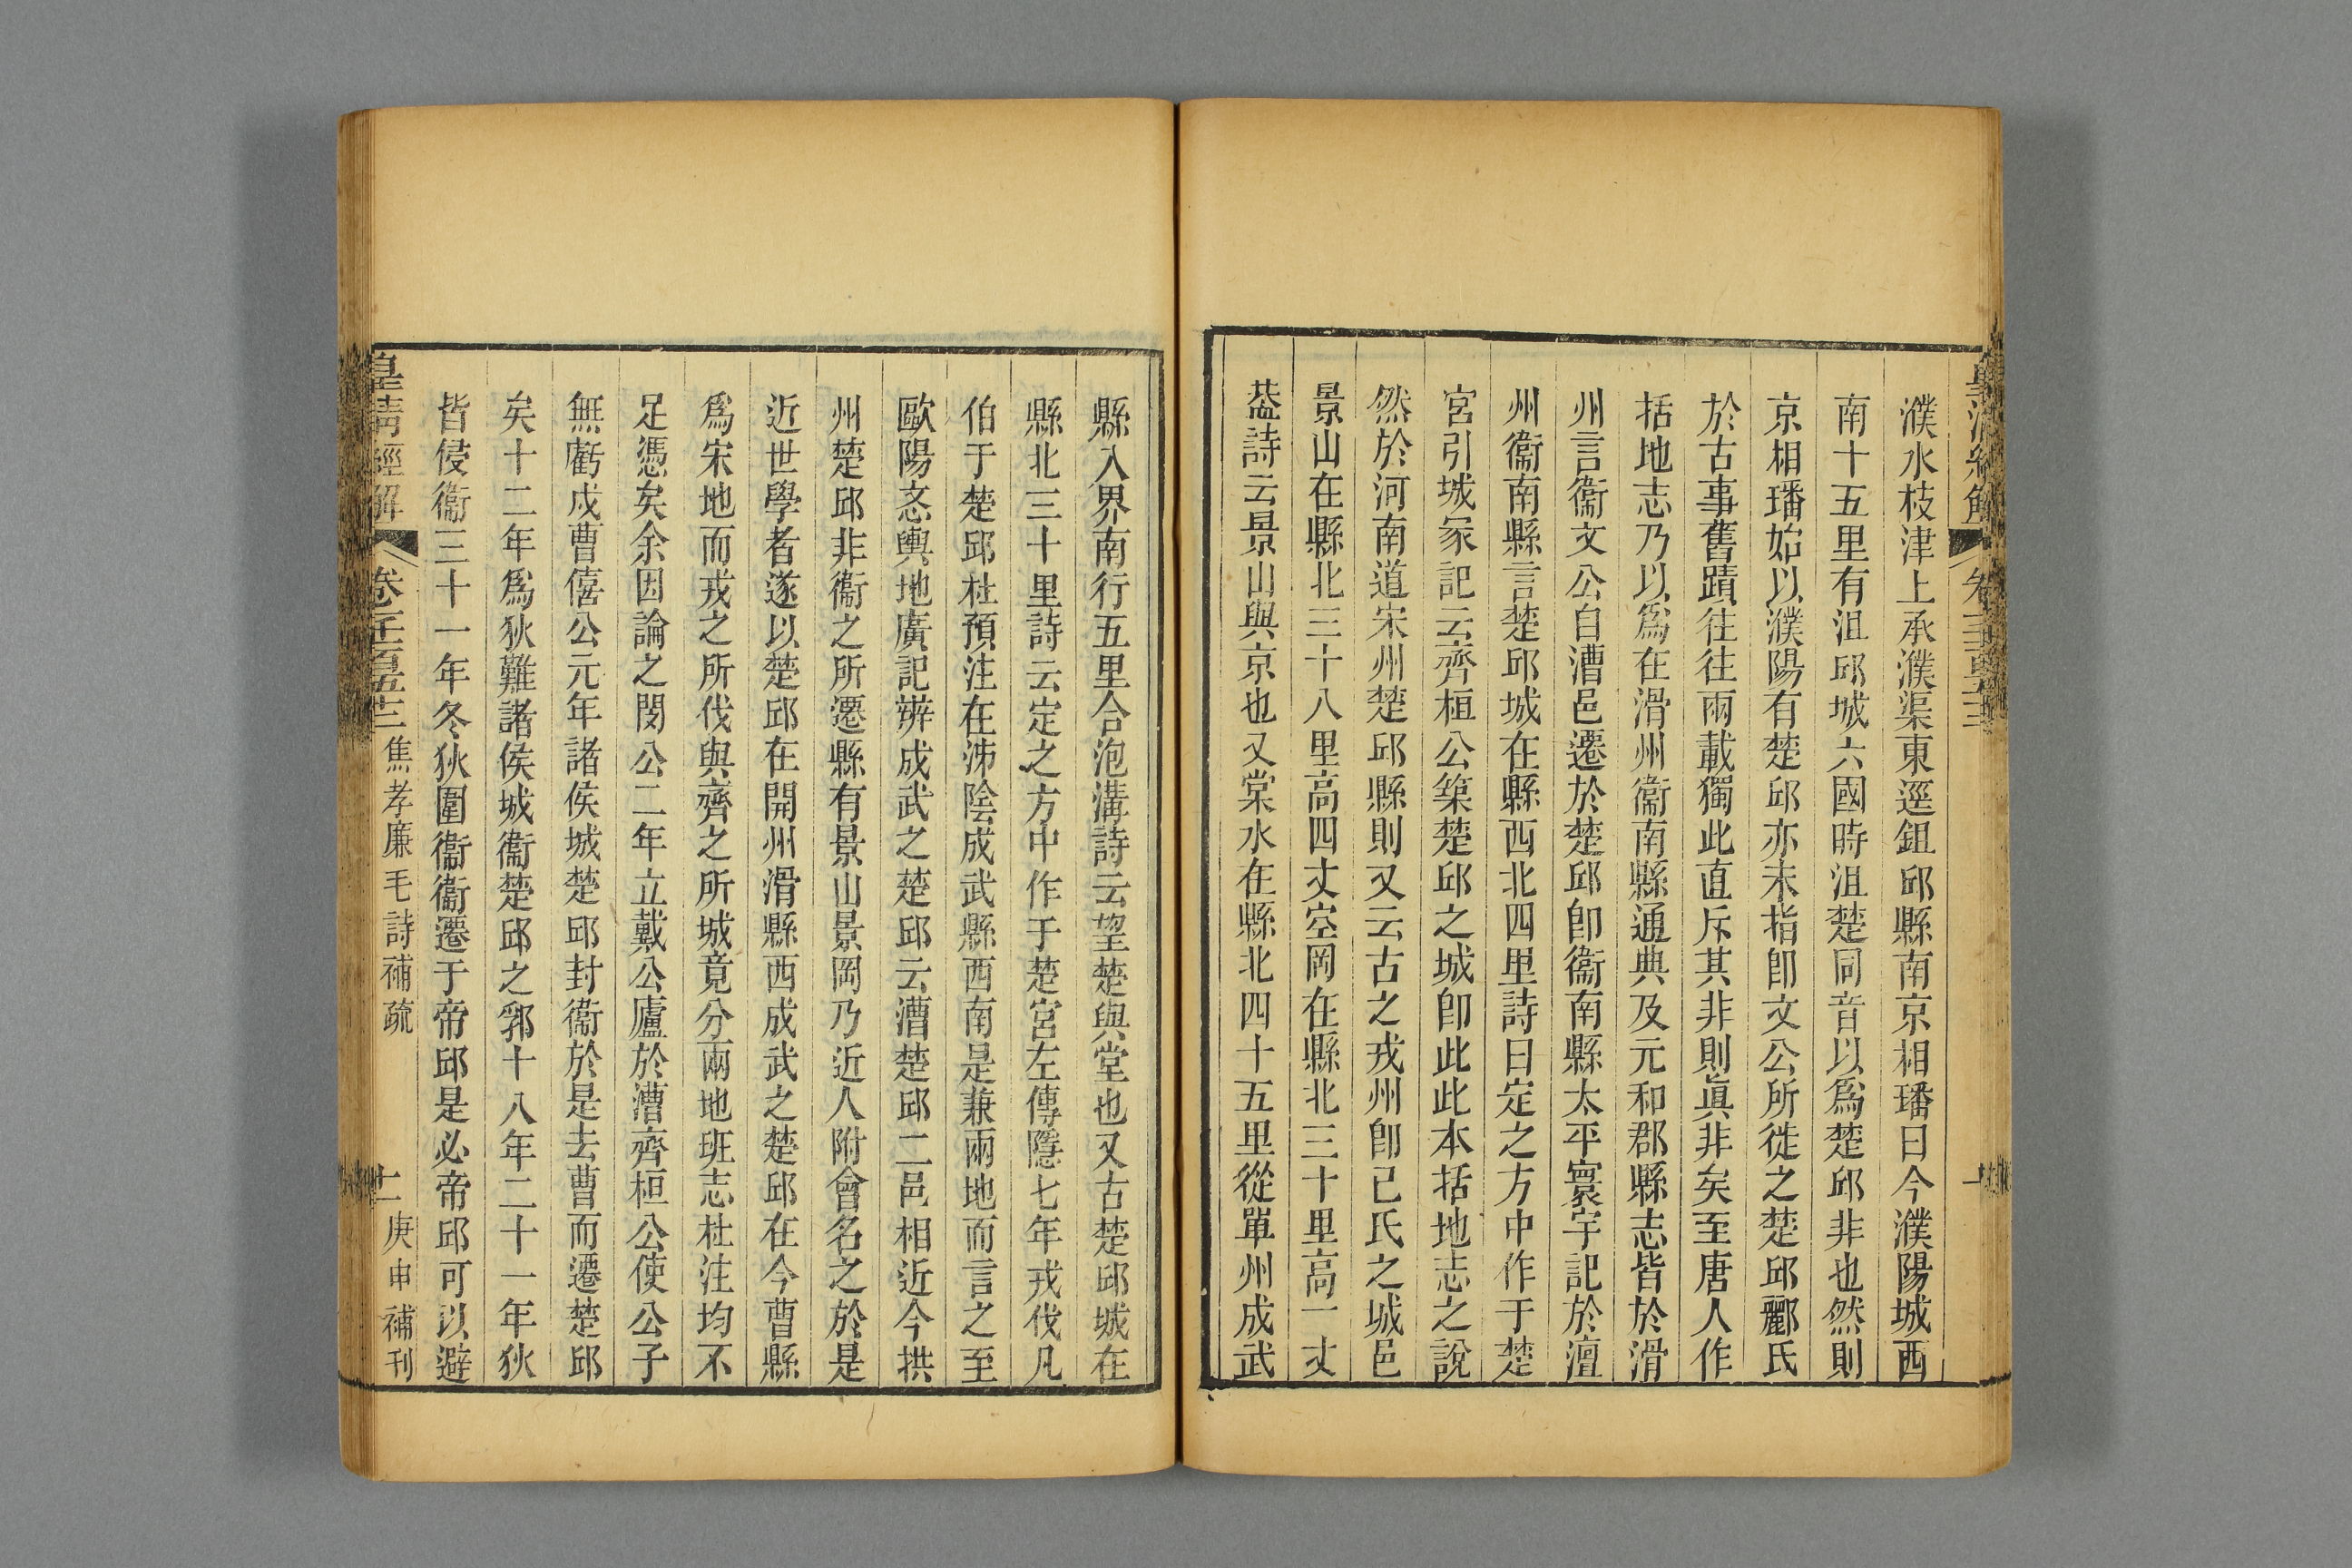 濮水枝津上承濮渠東逕鉏邱縣南京相璠曰今濮陽城西
南十五里有沮邱城六國時沮楚同音以爲楚邱非也然則
京相璠始以濮陽有楚邱亦未指卽文公所徙之楚邱酈氏
於古事舊蹟往往兩載獨此直斥其非則眞非矣至唐人作
括地志乃以爲在滑州衞南縣通典及元和郡縣志皆於滑
州言衞文公自漕邑遷於楚邱卽衞南縣太平寰宇記於澶
州衞南縣言楚邱城在縣西北四里詩曰定之方中作于楚
宮引城冢記云齊桓公築楚邱之城卽此此本括地志之說
然於河南道宋州楚邱縣則又云古之戎州卽己氏之城邑
景山在縣北三十八里高四丈空岡在縣北三十里高一丈
葢詩云景山與京也又棠水在縣北四十五里從單州成武
縣入界南行五里合泡溝詩云望楚與堂也又古楚邱城在
縣北三十里詩云定之方中作于楚宮左傳隱七年戎伐凡
伯于楚邱杜預注在泲陰成武縣西南是兼兩地而言之至
歐陽忞輿地廣記辨成武之楚邱云漕楚邱二邑相近今拱
州楚邱非衞之所遷縣有景山景岡乃近人附會名之於是
近世學者遂以楚邱在開州滑縣西成武之楚邱在今曹縣
爲宋地而戎之所伐與齊之所城竟分兩地班志杜注均不
足憑矣余因論之閔公二年立戴公廬於漕齊桓公使公子
無虧戍曹僖公元年諸侯城楚邱封衞於是去曹而遷楚邱
矣十二年爲狄難諸侯城衞楚邱之郛十八年二十一年狄
皆侵衞三十一年冬狄圍衞衞遷于帝邱是必帝邱可以避
皇清經解 焦孝廉毛詩補疏 庚申補刊